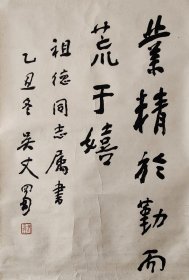 業精於勤而
荒于嬉
祖德同志属書
乙丑冬 吴丈蜀